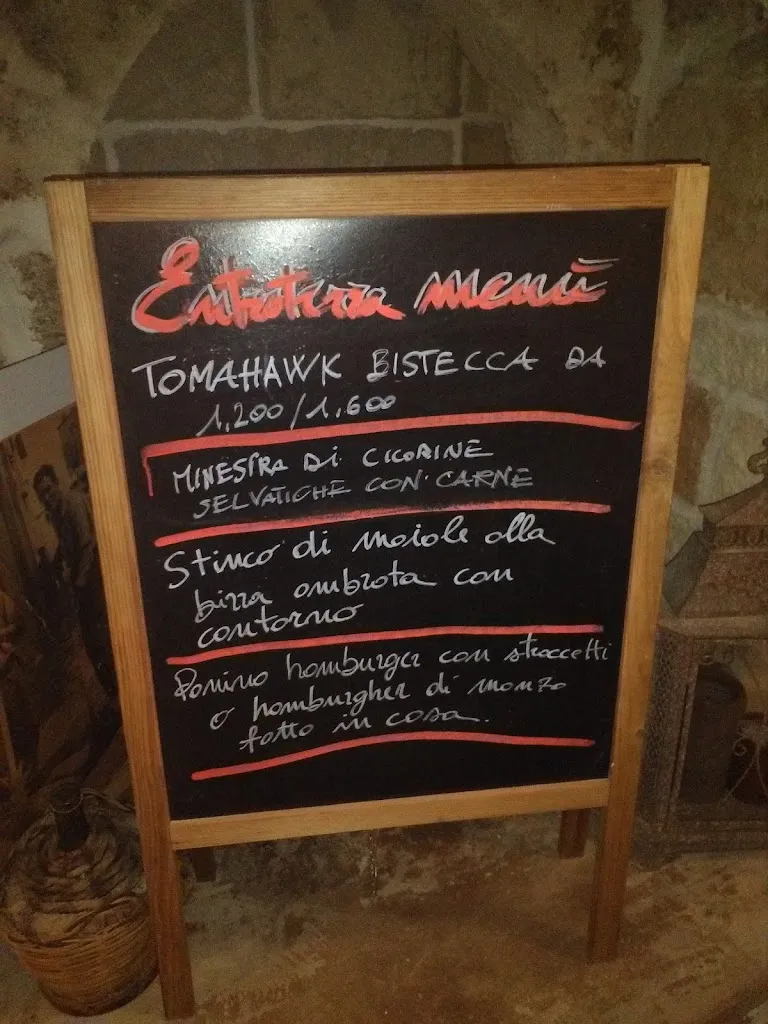 Entroterra menù
TOMAHAWK BISTECCA DA
1,200/1.600
MINESTRA DI CICORINE
SELVATICHE CON CARNE
Stinco di maiale alla
birra ambrata con
contorno
Panino hamburger con straccetti
o hamburgher di manzo
fatto in casa.